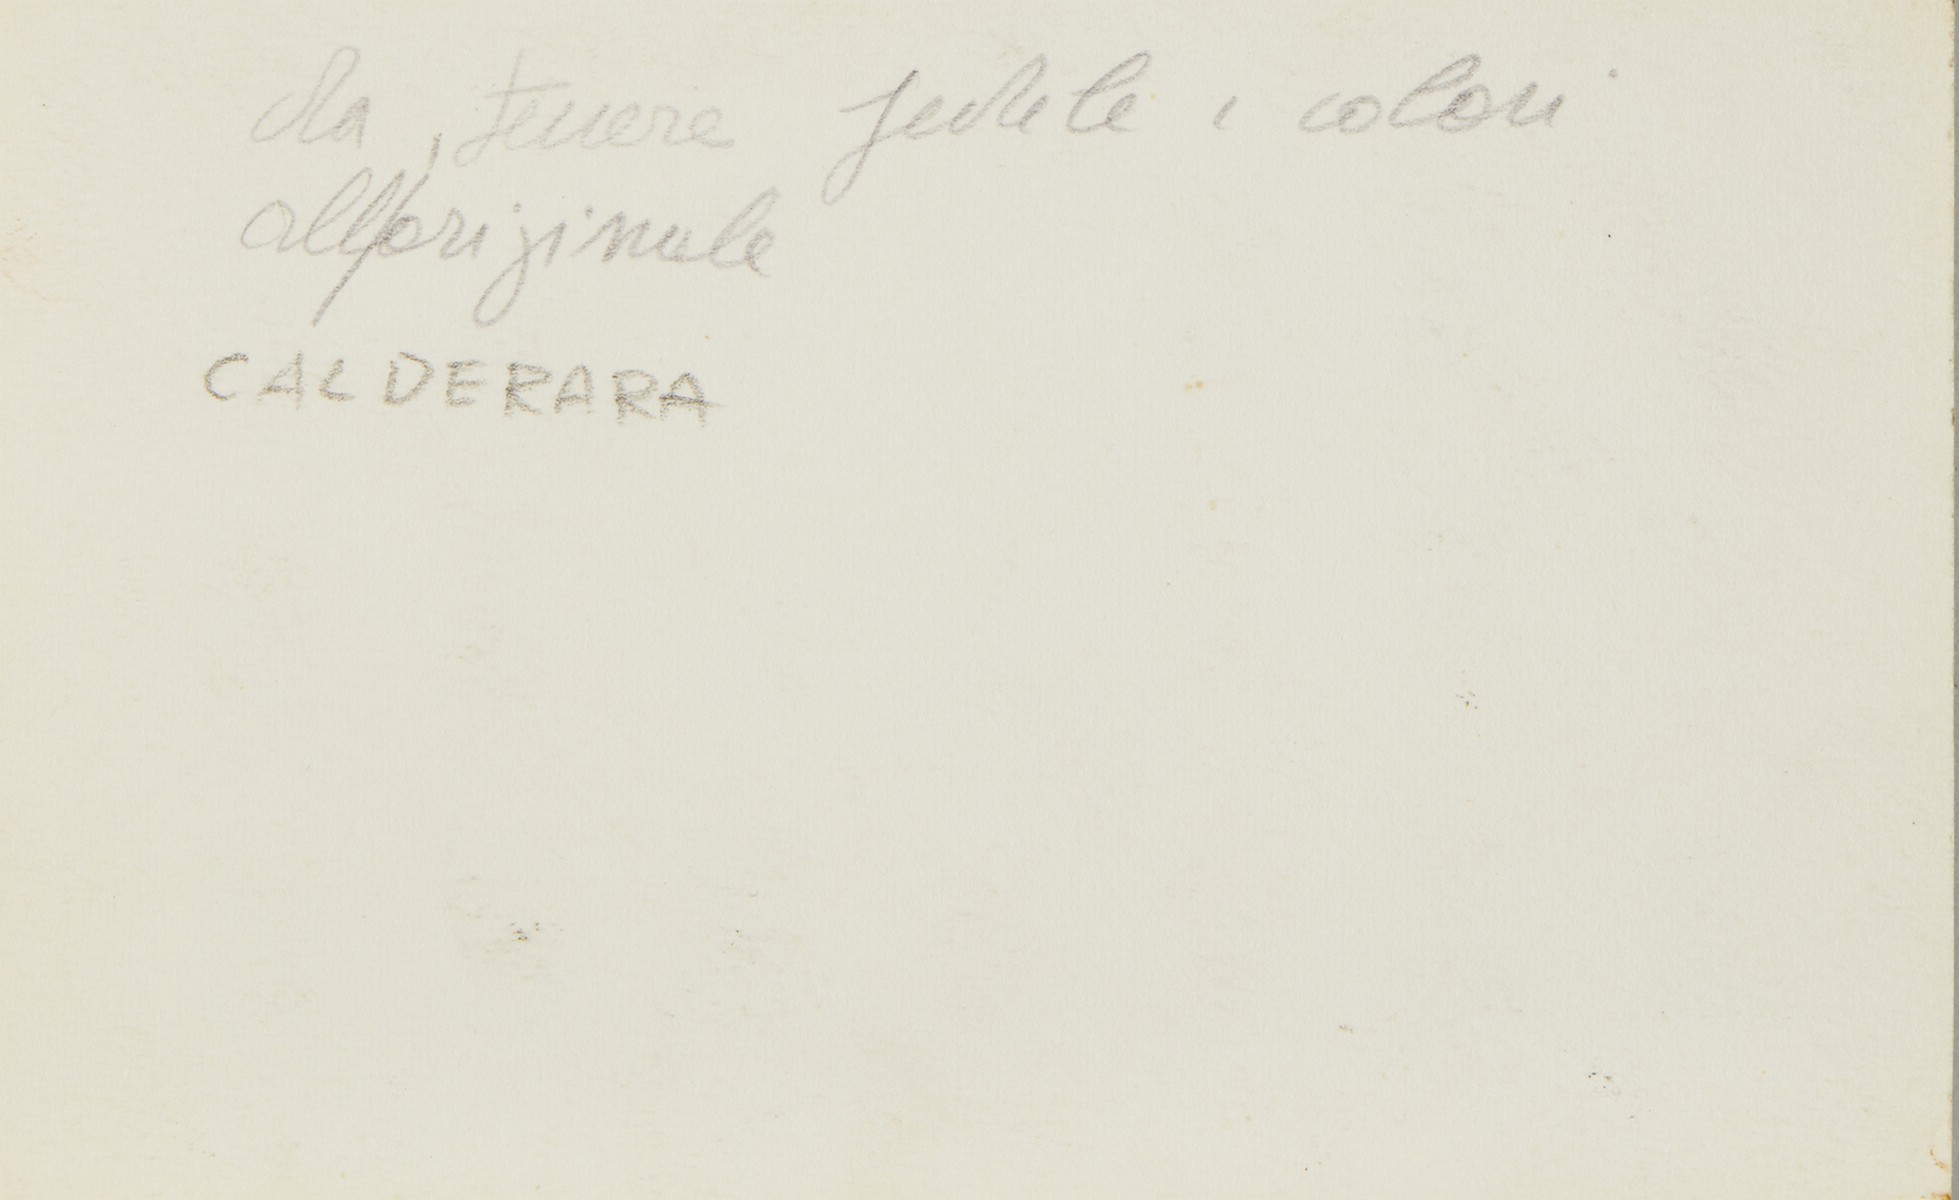 da tenere fedele i colori
all'originale
CALDERARA